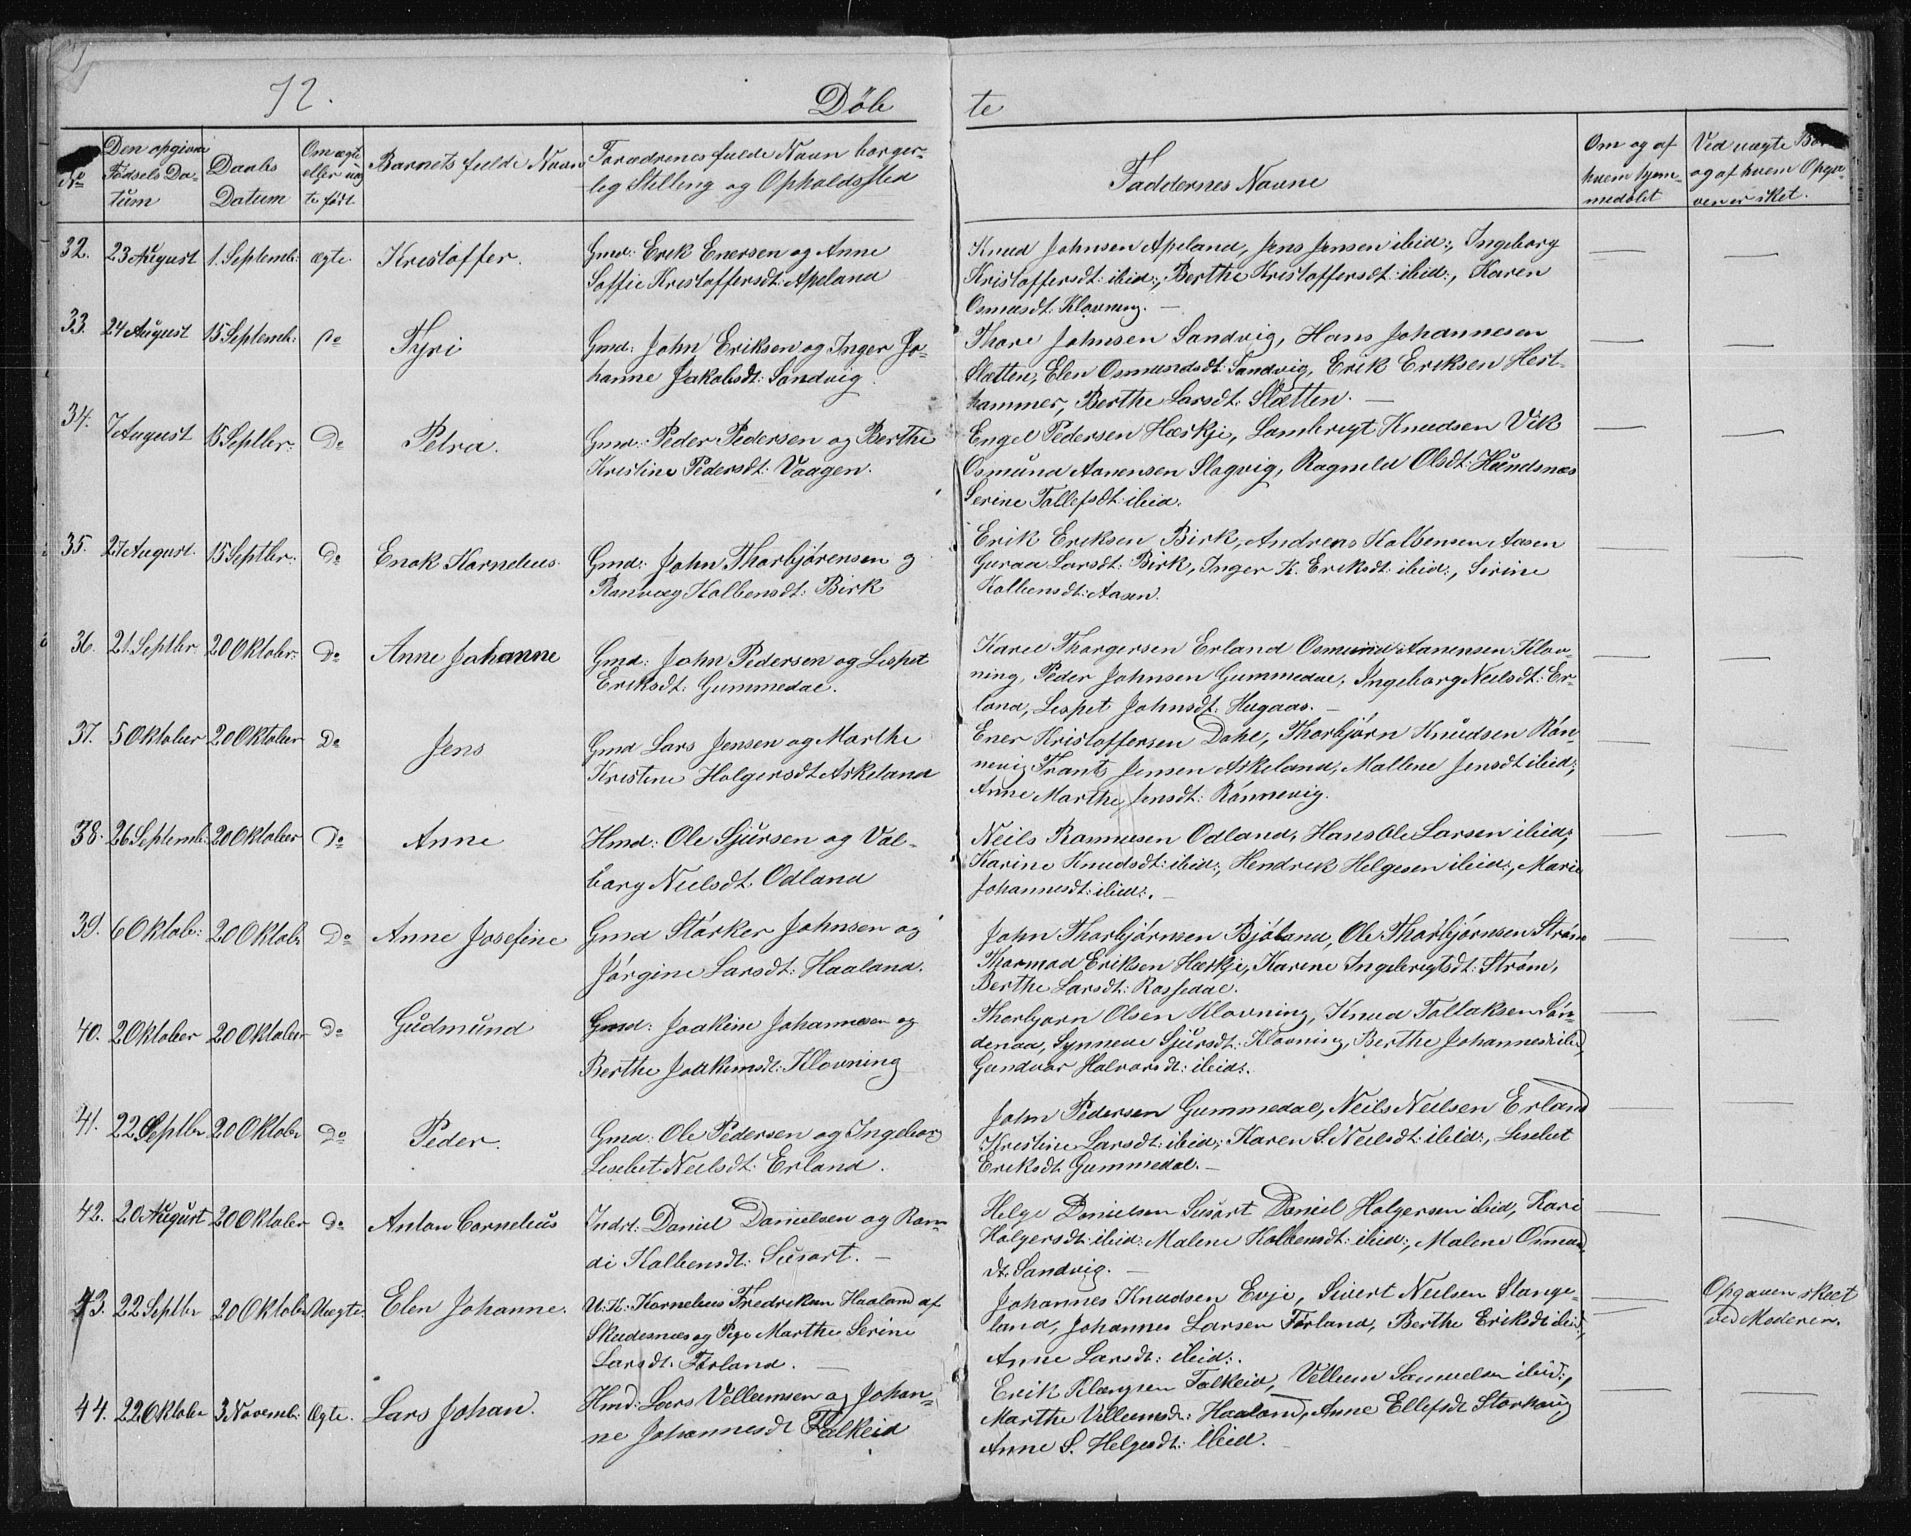 72.
Döb
te
No
Den opgivne Fødsels Datum
Daabs Datum
Om ægte eller uægte født
Barnets fulde Navn
Forældrenes fulde Navn borgerlig Stilling og Opholdssted
Faddernes Navne
Om og af hvem hjemmedøbt
Ved uægte Børn og af hvem Opgaven er sket.
32. 23 August 1. Septemb: ægte Kristoffer. Gmd: Erik Enersen og Anne
Soffie Kristoffersdt: Apeland
Knud Johnsen Apeland, Jens Jensen ibid:, Ingeborg
Kristoffersdt: ibid:, Berthe Kristoffersdt: ibid:, Karen
Osmusdt: Klovning. —
33. 24 August 15 Septemb: Do Tyri Gmd: John Eriksen og Inger Jo-
hanne Jakobsdt: Sandvig.
Thore Johnsen Sandvig, Hans Johannesen
Slætten, Elen Osmundsdt: Sandvig, Erik Eriksen Hest-
hammer, Berthe Larsdt: Slætten. —
34. 7 August 15 Septbr: Do Petra. Gmd: Peder Pedersen og Berthe
Kristine Pedersdt: Vaagen.
Engel Pedersen Hæskje, Lambregt Knudsen Vik
Osmund Aanensen Slogvig, Ragnild Olsdt: Hundsnæs
Serine Tollefsdt: ibid.
35. 27 August. 15 Septbr: Do Enok Kornelius. Gmd: John Thorbjørensen og
Ranvæg Kolbensdt: Birk
Erik Eriksen Birk, Andreas Kolbensen Aasen
Guraa Larsdt: Birk, Inger K. Eriksdt: ibid:, Sirine
Kolbensdt: Aasen.
36. 21. Septbr. 20 Oktober: Do Anne Johanne Gmd: John Pedersen og Lispet
Eriksdt: Gummedal.
Karee Thorgersen Erland Osmund Aanensen Klov-
ning, Peder Johnsen Gummedal, Ingeborg Neilsdt: Er-
land, Lispet Johnsdt: Hugaas. —
37. 5 Oktober 20 Oktober Do Jens Gmd Lars Jensen og Marthe
Kristine Holgersdt Askeland
Ener Kristoffersen Dahl, Thorbjørn Knudsen Røn-
nevig Frants Jensen Askeland, Mallene Jensdt ibid:,
Anne Marthe Jensdt: Rønnevig.
38. 26 Septemb: 20 Oktober Do Anne Hmd: Ole Sjursen og Val-
borg Neilsdt: Odland
Neils Rasmusen Odland, Hans Ole Larsen ibid:,
Karine Knudsdt: ibid:, Hendrik Helgesen ibid:, Marie
Johannesdt: ibid:. —
39. 6 Oktob: 20 Oktob: Do Anne Josefine Gmd Størker Johnsen og
Jørgine Larsdt: Haaland.
John Thorbjørnsen Bjøland, Ole Thorbjørnsen Strøm
Thormod Eriksen Hæskje, Karine Ingebrigtsdt: Strøm,
Berthe Larsdt: Rossedal.
40. 2 Oktober 20 Oktober Do Gudmund Gmd: Joakim Johannesen og
Berthe Joakimsdt: Klovning
Thorbjørn Olsen Klovning, Knud Tollaksen Søn-
denaa, Synneve Sjursdt: Klovning, Berthe Johannesdt ibid,
Gundvor Halvorsdt: ibid:.
41. 22 Septbr 20 Oktobr Do Peder. Gmd: Ole Pedersen og Ingeborg
Lisebet Neilsdt: Erland.
John Pedersen Gummedal, Neils Neilsen Erland
Kristine Larsdt: ibid:, Karen S. Neilsdt: ibid:, Lisebet
Eriksdt: Gummedal. —
42. 20 August 20 Oktober Do Anton Cornelius Indrt: Daniel Danielsen og Ran-
di Kolbensdt: Susort. —
Helge Danielsen Susort Daniel Holgersen ibid, Kari
Holgersdt: ibid: Malene Kolbensdt: ibid:, Malene Osmund
dt: Sandvig. —
43. 22 Septbr 20 Oktober Uægte. Elen Johanne. U.K: Kornelius Fredriksen Haaland af
Skudesnæs og Pige Marthe Serine
Larsdt: Førland. —
Johannes Knudsen Evje, Sivert Neilsen Stange-
land, Johannes Larsen Førland, Berthe Eriksdt ibid:,
Anne Larsdt: ibid:.
Opgaven skeet
ved Moderen.
44. 22 Oktober 3 Novemb: Ægte. Lars Johan. Hmd: Lars Velleumsen og Johan-
ne Johannesdt Falkeid
Erik Klængsen Falkeid, Velleum Samuelsen ibid:,
Marthe Velleumsdt: Haaland, Anne Ellefsdt Storhaug
Anne S. Helgesdt: ibid.